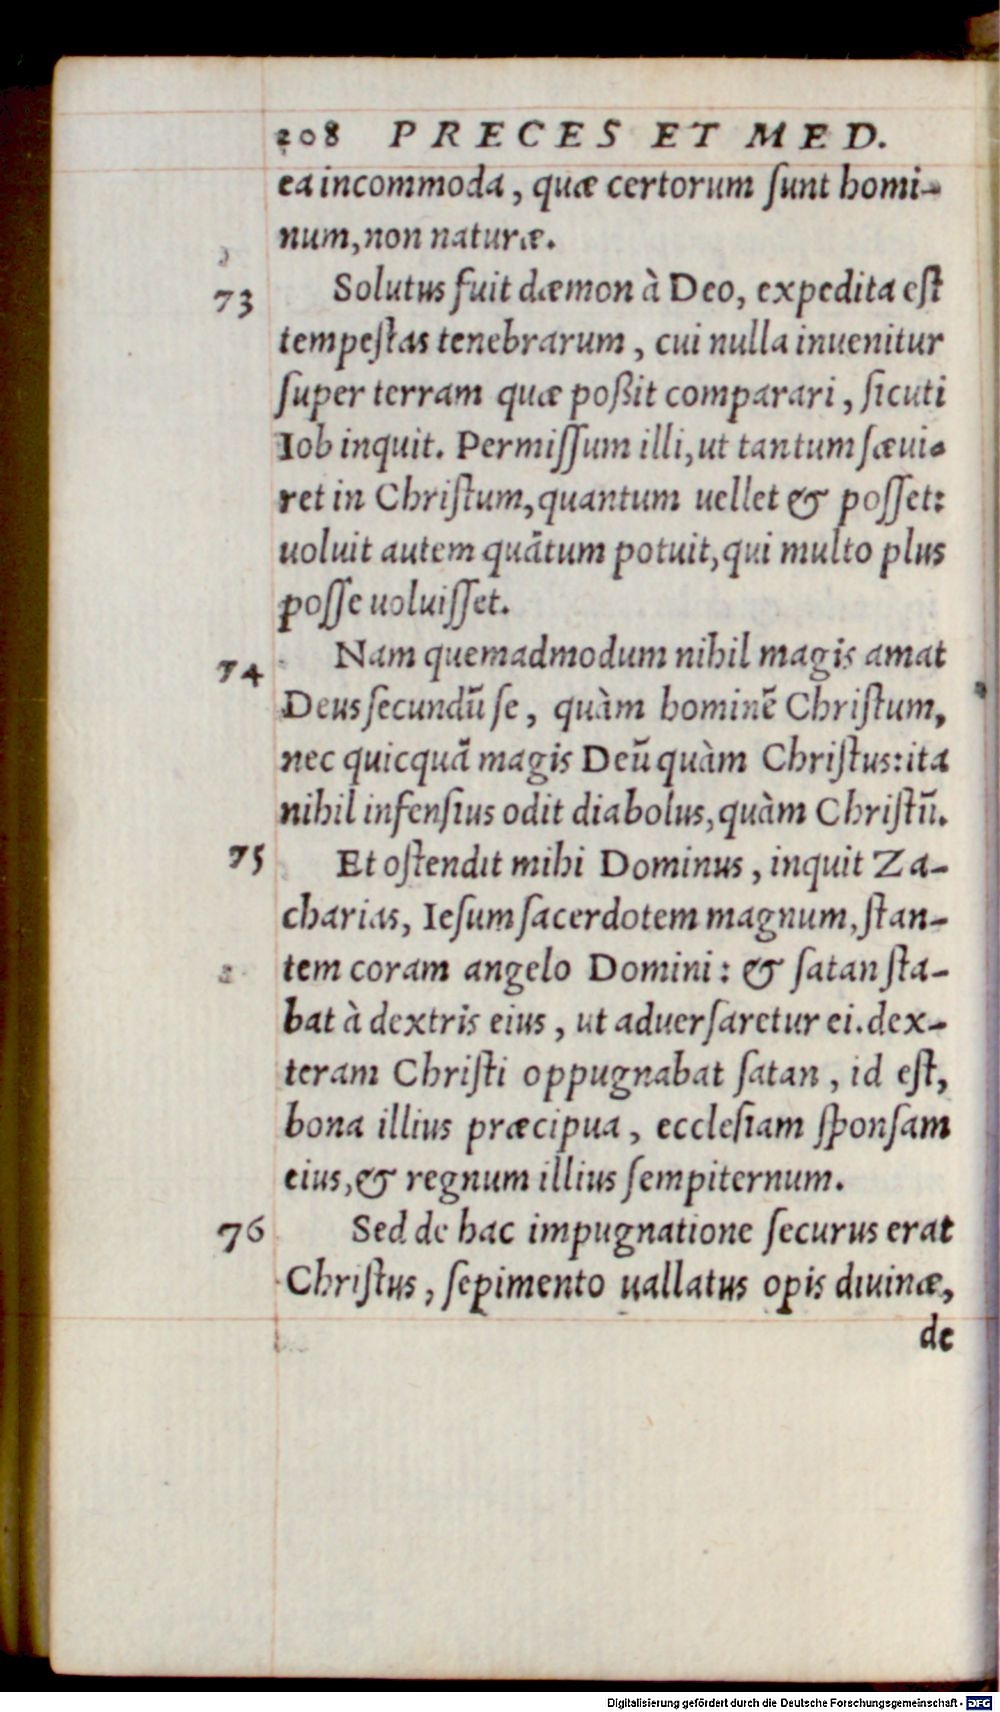 208 PRECES ET MED.
ea incommoda, quæ certorum ſunt homi-
num, non naturæ.
73 Solutus fuit dæmon à Deo, expedita eſt
tempeſtas tenebrarum, cui nulla inuenitur
ſuper terram quæ poßit comparari, ſicuti
Iob inquit. Permiſſum illi, ut tantum ſæui-
ret in Chriſtum, quantum uellet & poſſet:
uoluit autem quãtum potuit, qui multo plus
poſſe uoluiſſet.
74 Nam quemadmodum nihil magis amat
Deus ſecundũ ſe, quàm hominẽ Chriſtum,
nec quicquã magis Deũ quàm Chriſtus: ita
nihil infenſius odit diabolus, quàm Chriſtũ.
75 Et oſtendit mihi Dominus, inquit Za-
charias, Ieſum ſacerdotem magnum, ſtan-
tem coram angelo Domini: & ſatan ſta-
bat à dextris eius, ut aduerſaretur ei. dex-
teram Chriſti oppugnabat ſatan, id eſt,
bona illius præcipua, eccleſiam ſponſam
eius, & regnum illius ſempiternum.
76 Sed de hac impugnatione ſecurus erat
Chriſtus, ſepimento uallatus opis diuinæ,
de
Digitalisierung gefördert durch die Deutsche Forschungsgemeinschaft - DFG